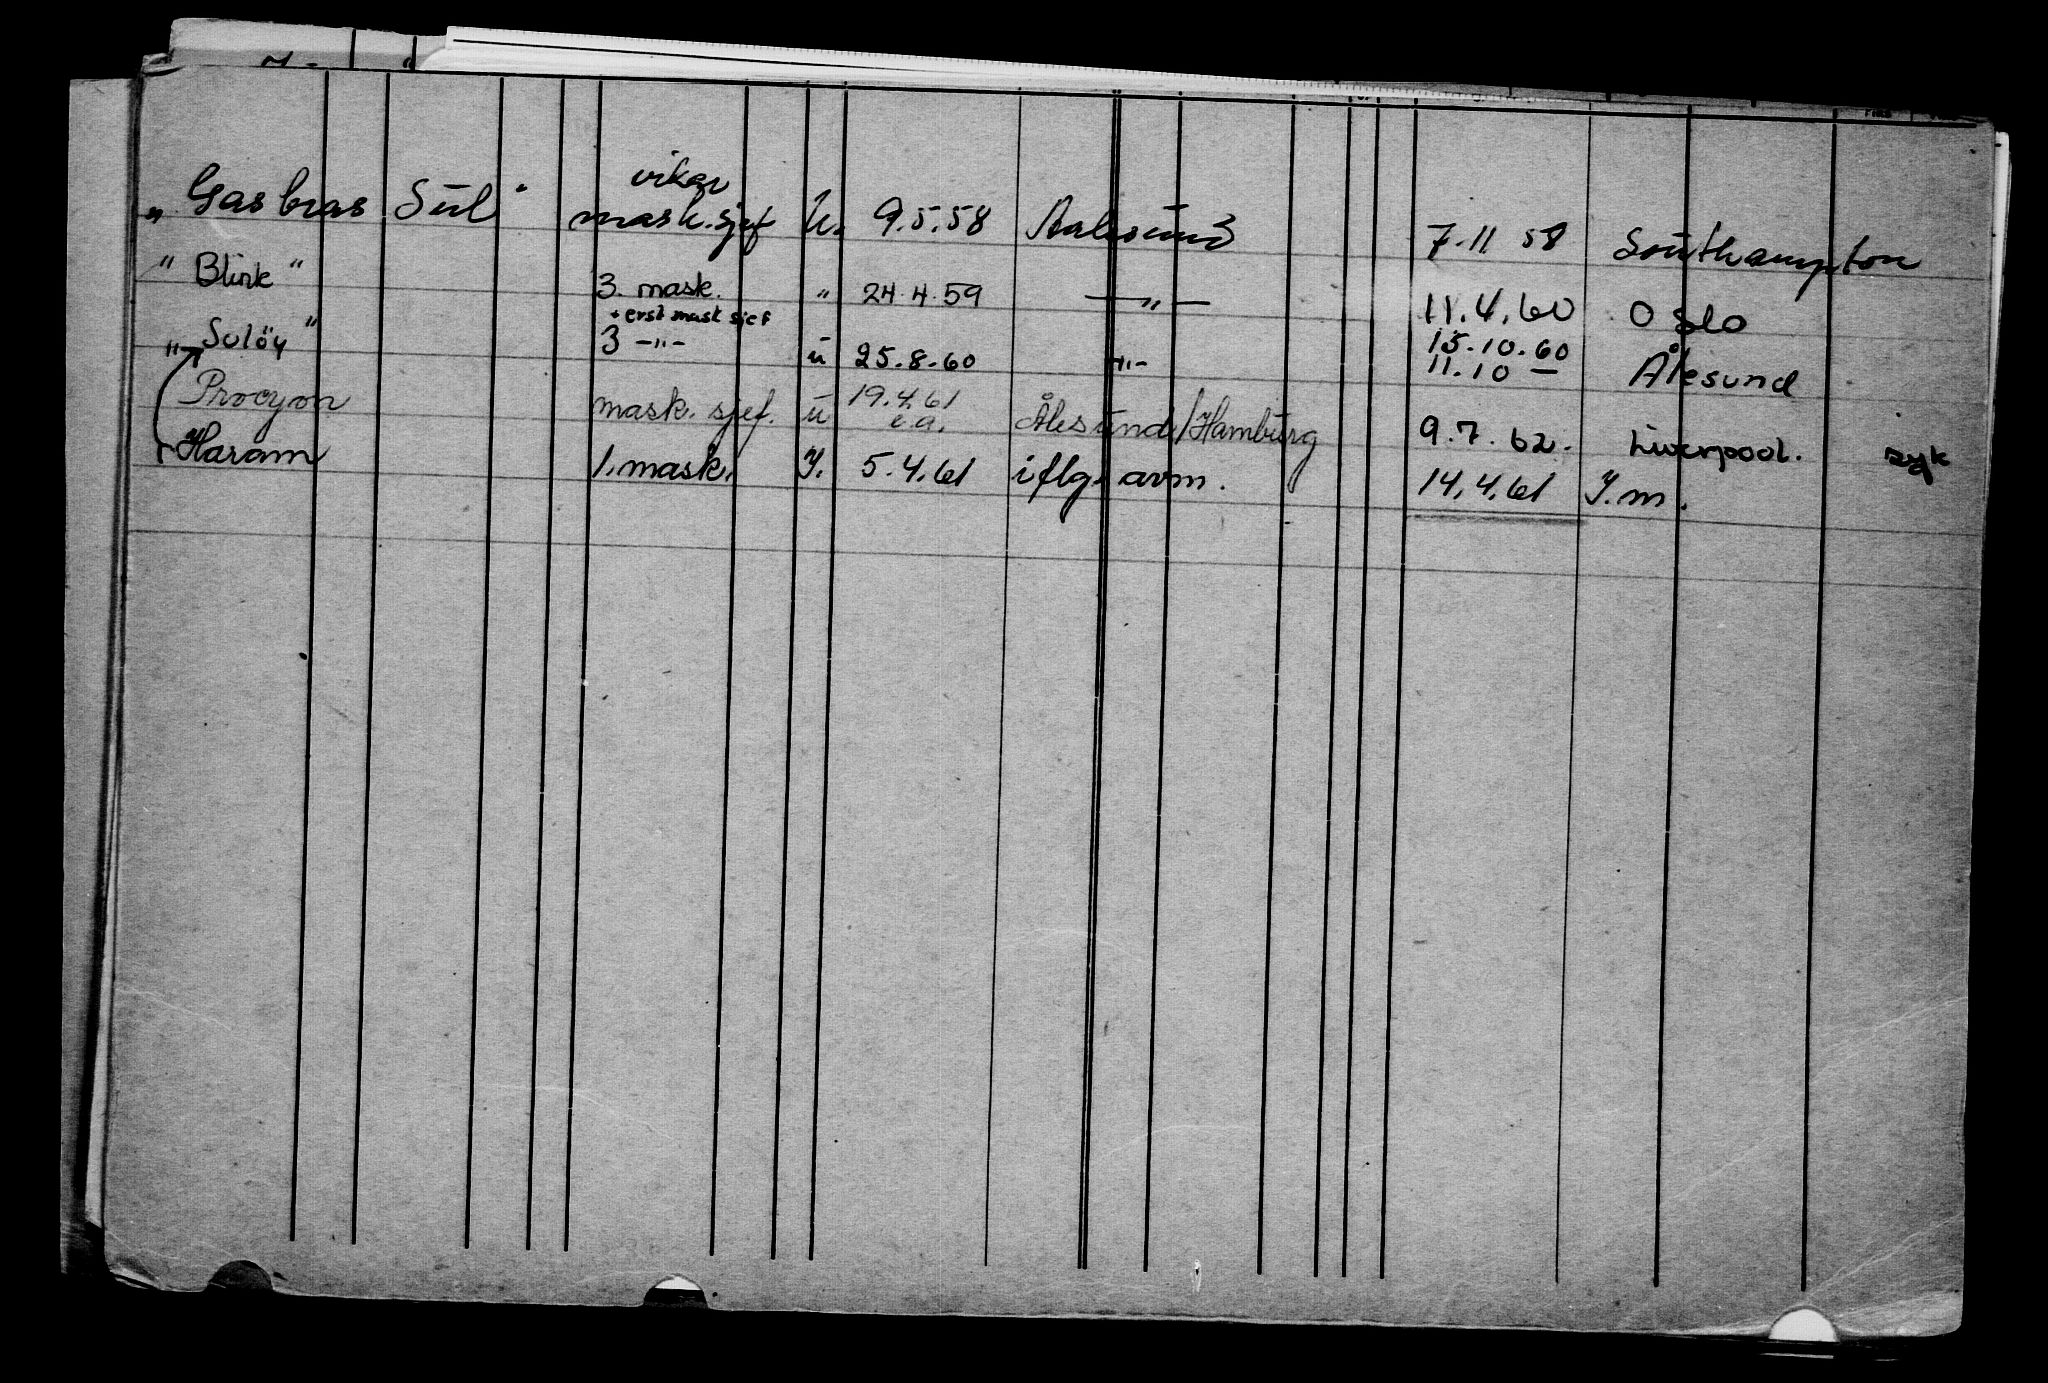 „ Gasbras Sul" vikar mask.sjef U. 9.5.58 Aalesund 7.11 58 Southampton
" Blink " 3. mask. " 24.4.59 — " — 11.4.60 Oslo
+ erst mask sjef 15.10.60
„ Sulöy " 3 -"- u 25.8.60 -"- 11.10 — Ålesund
Procyon mask. sjef. u 19.4.61 e.a. Ålesund/Hamburg 9.7.62. Liverpool. syk
Haram 1.mask. I. 5.4.61 iflg. avm. 14.4.61 I.m.